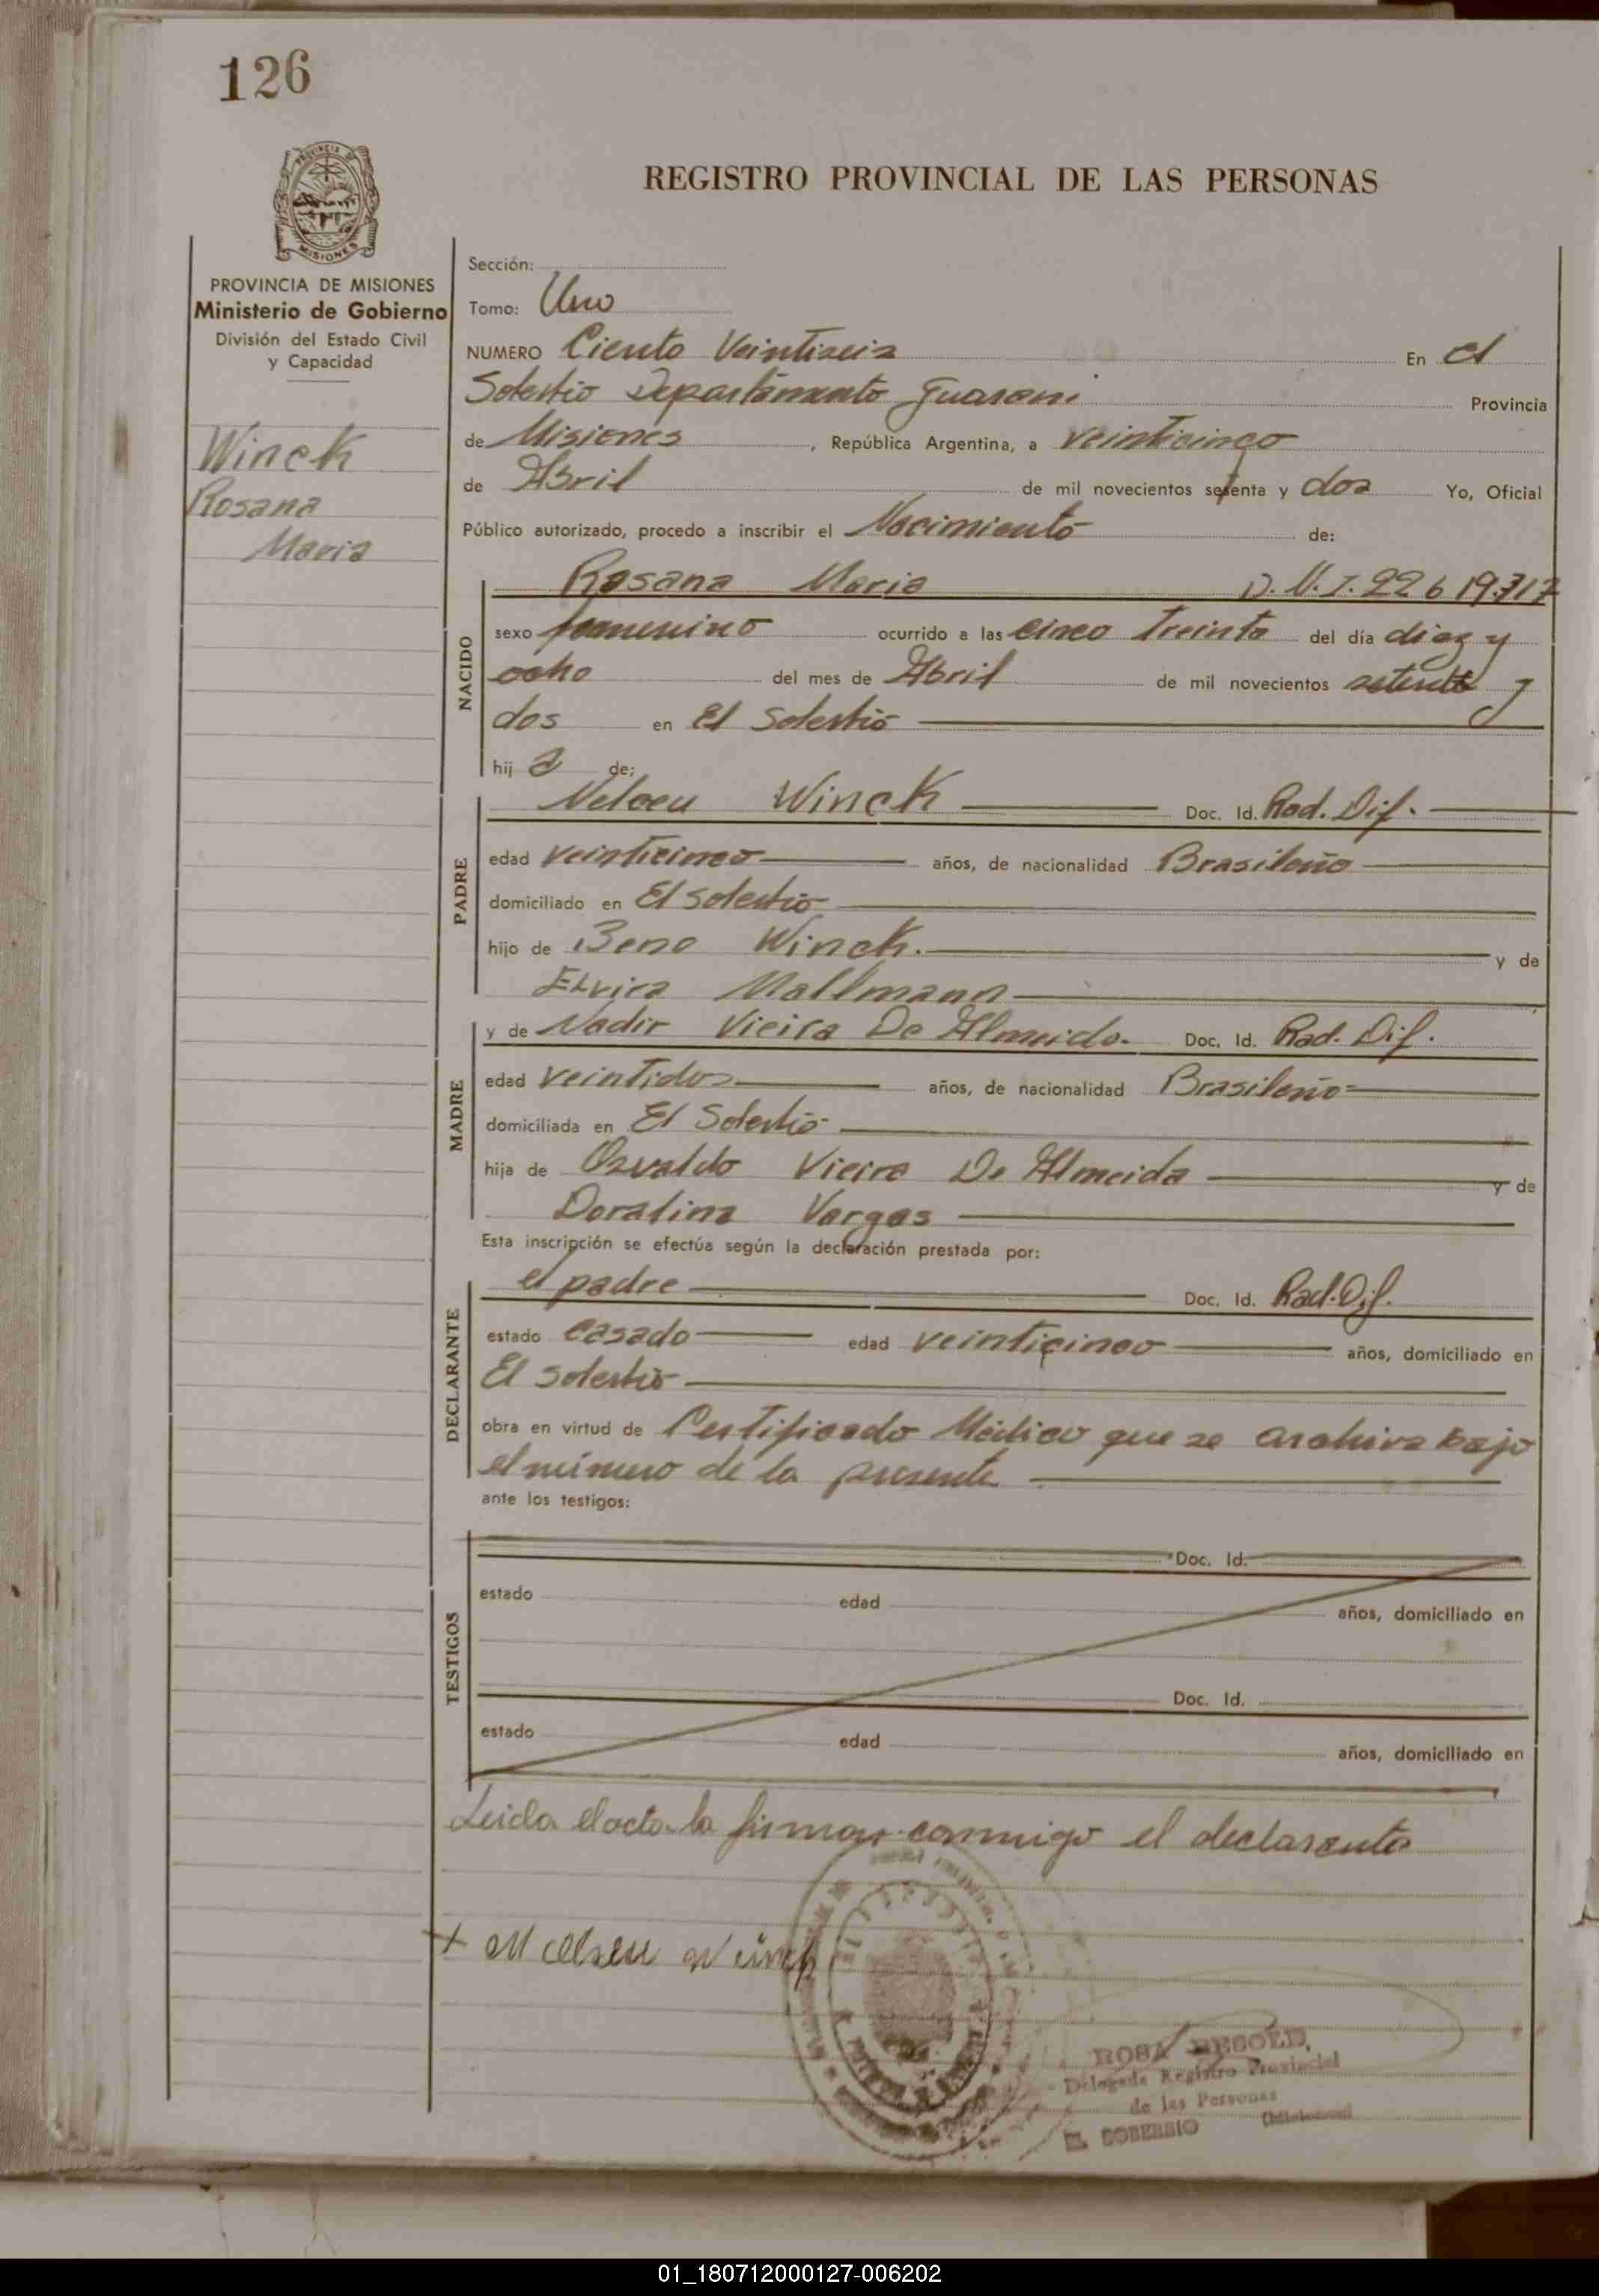 126
REGISTRO PROVINCIAL DE LAS PERSONAS
PROVINCIA DE
MISIONES
PROVINCIA DE MISIONES
Ministerio de Gobierno
División del Estado Civil
y Capacidad
Winck
Rosana
Maria
Sección:
Tomo: Uno
NUMERO Ciento Veintiseis En el
Soberbio Departamento Guarani Provincia
de Misiones, República Argentina, a veinticinco
de Abril de mil novecientos setenta y dos Yo, Oficial
Público autorizado, procedo a inscribir el Nacimiento de:
NACIDO
Rosana Maria D.N.I. 22 619.717
sexo femenino ocurrido a las cinco Treinta del día diez y
ocho del mes de Abril de mil novecientos setenta y
dos en El Soberbio
hij a de:
PADRE
Nelceu Winck Doc. Id. Rad. Dif.
edad veinticinco años, de nacionalidad Brasileño
domiciliado en El Soberbio
hijo de Beno Winck. y de
Elvira Mallmann
MADRE
y de Nadir Vieira De Almeida. Doc. Id. Rad. Dif.
edad veintidos años, de nacionalidad Brasileño
domiciliada en El Soberbio
hija de Osvaldo Vieira De Almeida y de
Doralina Vargas
Esta inscripción se efectúa según la declaración prestada por:
DECLARANTE
el padre Doc. Id. Rad. Dif.
estado casado edad veinticinco años, domiciliado en
El Soberbio
obra en virtud de Certificado Médico que se archiva bajo
el número de la presente
ante los testigos:
TESTIGOS
Doc. Id.
estado edad años, domiciliado en
Doc. Id.
estado edad años, domiciliado en
Leida el acta la firman conmigo el declarante
Winck
ROSA BESOLD,
Delegada Registro Provincial
de las Personas
EL SOBERBIO (Misiones)
01_180712000127-006202